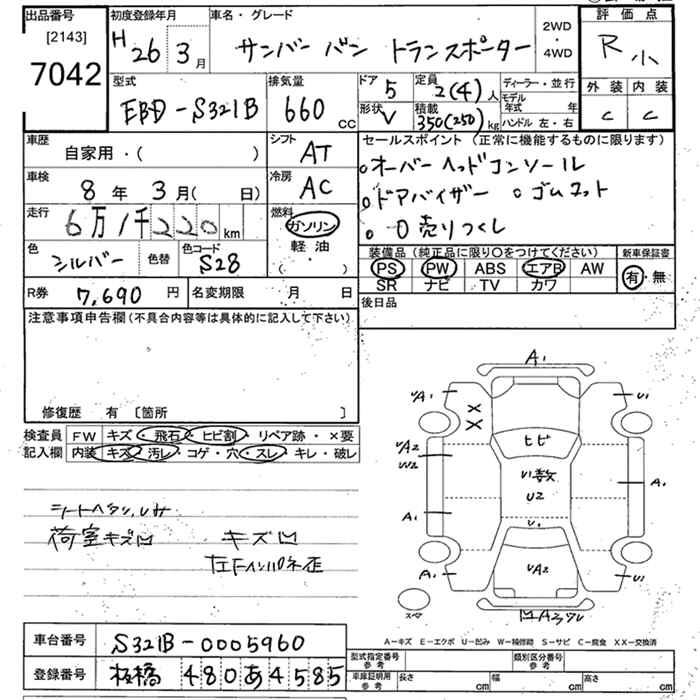 出品番号 初度登録年月 車名・グレード 評価点
[2143] H26 3月 サンバーバン トランスポーター 2WD・4WD R 小
7042 型式 排気量 ドア 5 定員 2(4)人 ディーラー・並行 外装 内装
EBD-S321B 660cc 形状 V 積載 350(250)kg モデル年式 年 ハンドル 左・右 C C
車歴 自家用・( ) シフト AT セールスポイント(正常に機能するものに限ります)
車検 8年3月( 日) 冷房 AC ○オーバーヘッドコンソール
○ドアバイザー ○ゴムマット
走行 6万1千220km 燃料 ガソリン 軽油 ( ) ○売りつくし
色 シルバー 色替 色コード S28 装備品(純正品に限り○をつけてください) 新車保証書
PS PW ABS エアB AW 有・無
SR ナビ TV カワ
R券 7,690円 名変期限 月 日 後日品
注意事項申告欄(不具合内容等は具体的に記入して下さい)
修復歴 有 〔箇所 〕
検査員記入欄 FW キズ・飛石・ヒビ割・リペア跡・×要
内装 キズ・汚レ・コゲ・穴・スレ・キレ・破レ
荷室キズ凹 キズ凹
A1
A1 U1
XX
ヒビ
A2
W2
U1数
U2
A1
A1
U1
A1 UA2 U1
スペア
A-キズ E-エクボ U-凹み W-補修跡 S-サビ C-腐食 XX-交換済
車台番号 S321B-0005960
登録番号 板橋 480 あ 4585
型式指定番号 参考 類別区分番号 参考
車庫証明用 参考 長さ cm 幅 cm 高さ cm